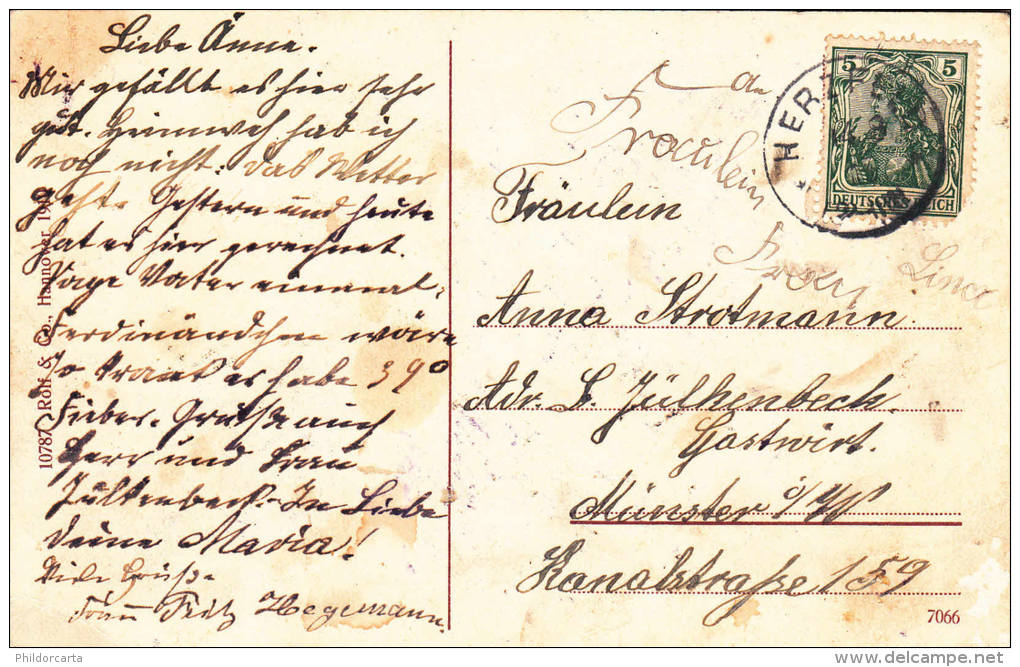 Liebe Änne.
Mir gefällt es hier sehr
gut. Heimweh hab ich
noch nicht. Das Wetter
geht. Gestern und heute
hat es hier geregnet.
Sage Vater einmal,
Ferdinändchen wäre
so krank er habe 39°
Fieber. Grüße auch
Herr und Frau
Jülkenbeck. In Liebe
deine Maria!
Viele Grüße
Frau Fritz Hegemann.
10787 Rolf & Co., Hannover
an
Fräulein
Fräulein
Anna Strotmann
Adr. B. Jülkenbeck.
Gastwirt.
Münster i/W
Kanalstraße 159
5 5
DEUTSCHES REICH
HER
7066
Phildorcarta
delcampe.net